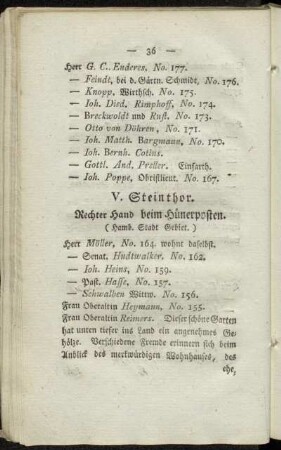 — 36 —
Herr G. C. Enderes, No. 177.
— Feindt, bei d. Gärtn. Schmidt, No. 176.
— Knopp, Wirthsch. No. 175.
— Joh. Died. Rimphoff, No. 174.
— Breckwoldt und Rust, No. 173.
— Otto von Döhren, No. 171.
— Joh. Matth. Bargmann, No. 170.
— Joh. Bernh. Cotius.
— Gottl. And. Preller. Einfarth.
— Joh. Poppe, Obristlieut. No. 167.
V. Steinthor.
Rechter Hand beim Hünerposten.
(Hamb. Stadt Gebiet.)
Herr Möller, No. 164. wohnt daselbst.
— Senat. Hudtwalker, No. 162.
— Joh. Heins, No. 159.
— Past. Hasse, No. 157.
— Schwalben Wittw. No. 156.
Frau Oberaltin Heymann, No. 155.
Frau Oberaltin Reimers. Dieser schöne Garten
hat unten tiefer ins Land ein angenehmes Ge-
hölze. Verschiedene Fremde erinnern sich beim
Anblick des merkwürdigen Wohnhauses, das
ehe,